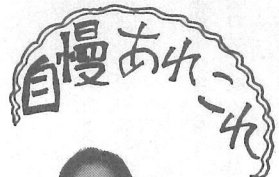 自慢あれこれ